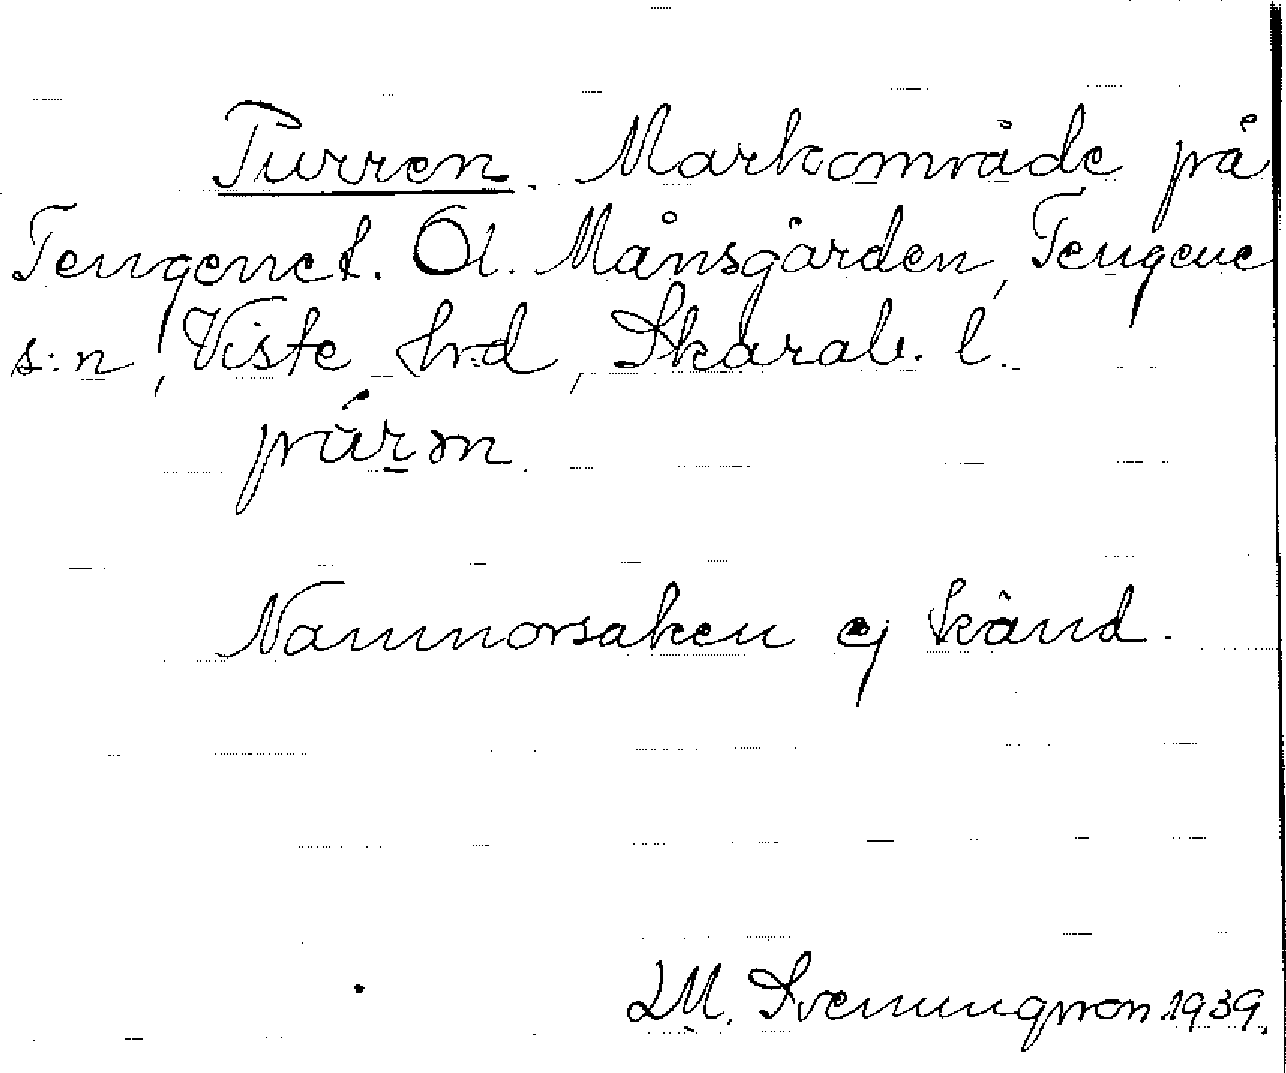 Turren. Markområde på
Tengenet. Öl. Månsgården, Tengene
s:n, Viste hrd, Skarab. l.
Namnorsaken ej känd.
D.M. Svenungsson 1939.